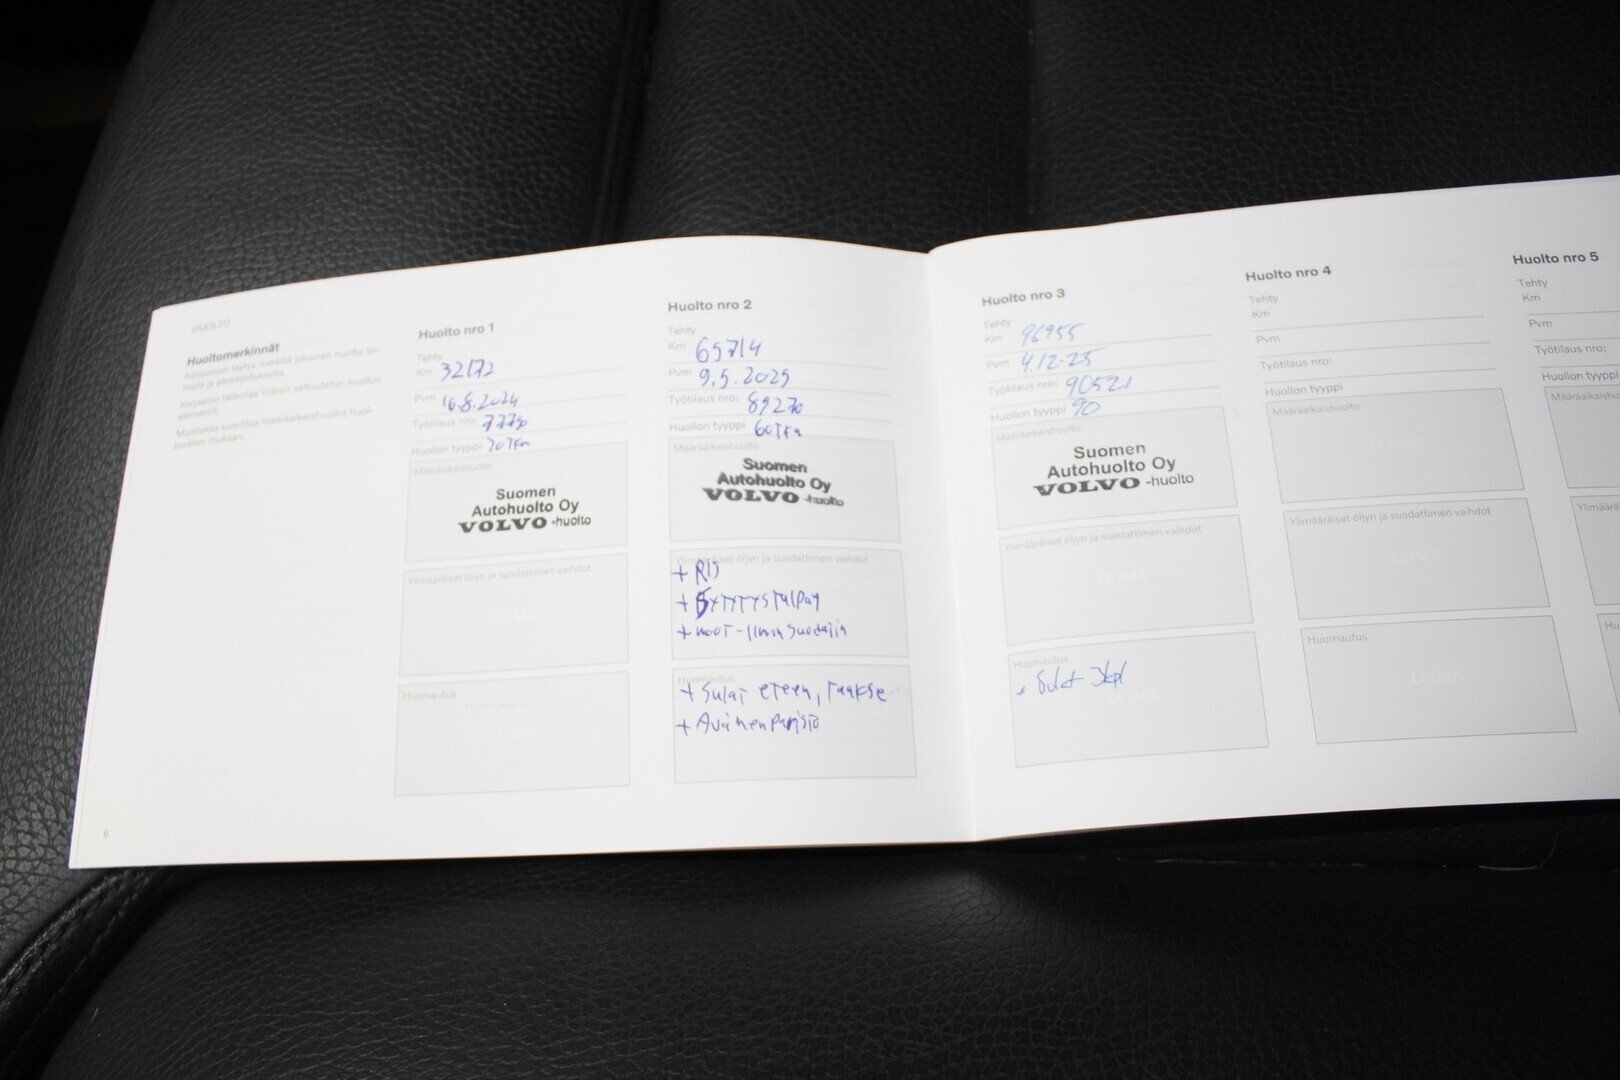 HUOLTO
Huoltomerkinnät
Korjaamon täytyy merkitä jokainen huolto lei-
malla ja allekirjoituksella.
Korjaamo tallentaa Volvon valtuutetun huollon
Muistakaa suorittaa määräaikaishuollot huol-
mukaan.
6
Huolto nro 1
Tehty
Km 32172
Pvm 16.8.2024
Työtilaus nro:
Huollon tyyppi
Määräaikaishuolto
Suomen
Autohuolto Oy
VOLVO -huolto
Ylimääräiset öljyn ja suodattimen vaihdot
LEIMA
Huomautus
LEIMA
Huolto nro 2
Tehty
Km 65714
Pvm 9.5.2025
Työtilaus nro: 89270
Huollon tyyppi 60TKm
Määräaikaishuolto
Suomen
Autohuolto Oy
VOLVO -huolto
Ylimääräiset öljyn ja suodattimen vaihdot
+
+ SYTYTYSTULPAT
+ MOOT-ilman suodatin
Huomautus
+ Sulat eteen, taakse
+ Avaimenparisto
Huolto nro 3
Tehty
Km 96955
Pvm 4.12-25
Työtilaus nro: 90521
Huollon tyyppi 90
Määräaikaishuolto
Suomen
Autohuolto Oy
VOLVO -huolto
Ylimääräiset öljyn ja suodattimen vaihdot
LEIMA
Huomautus
+ Sulat 3kpl
Huolto nro 4
Tehty
Km
Pvm
Työtilaus nro:
Huollon tyyppi
Määräaikaishuolto
LEIMA
Ylimääräiset öljyn ja suodattimen vaihdot
LEIMA
Huomautus
LEIMA
Huolto nro 5
Tehty
Km
Pvm
Työtilaus nro:
Huollon tyyppi